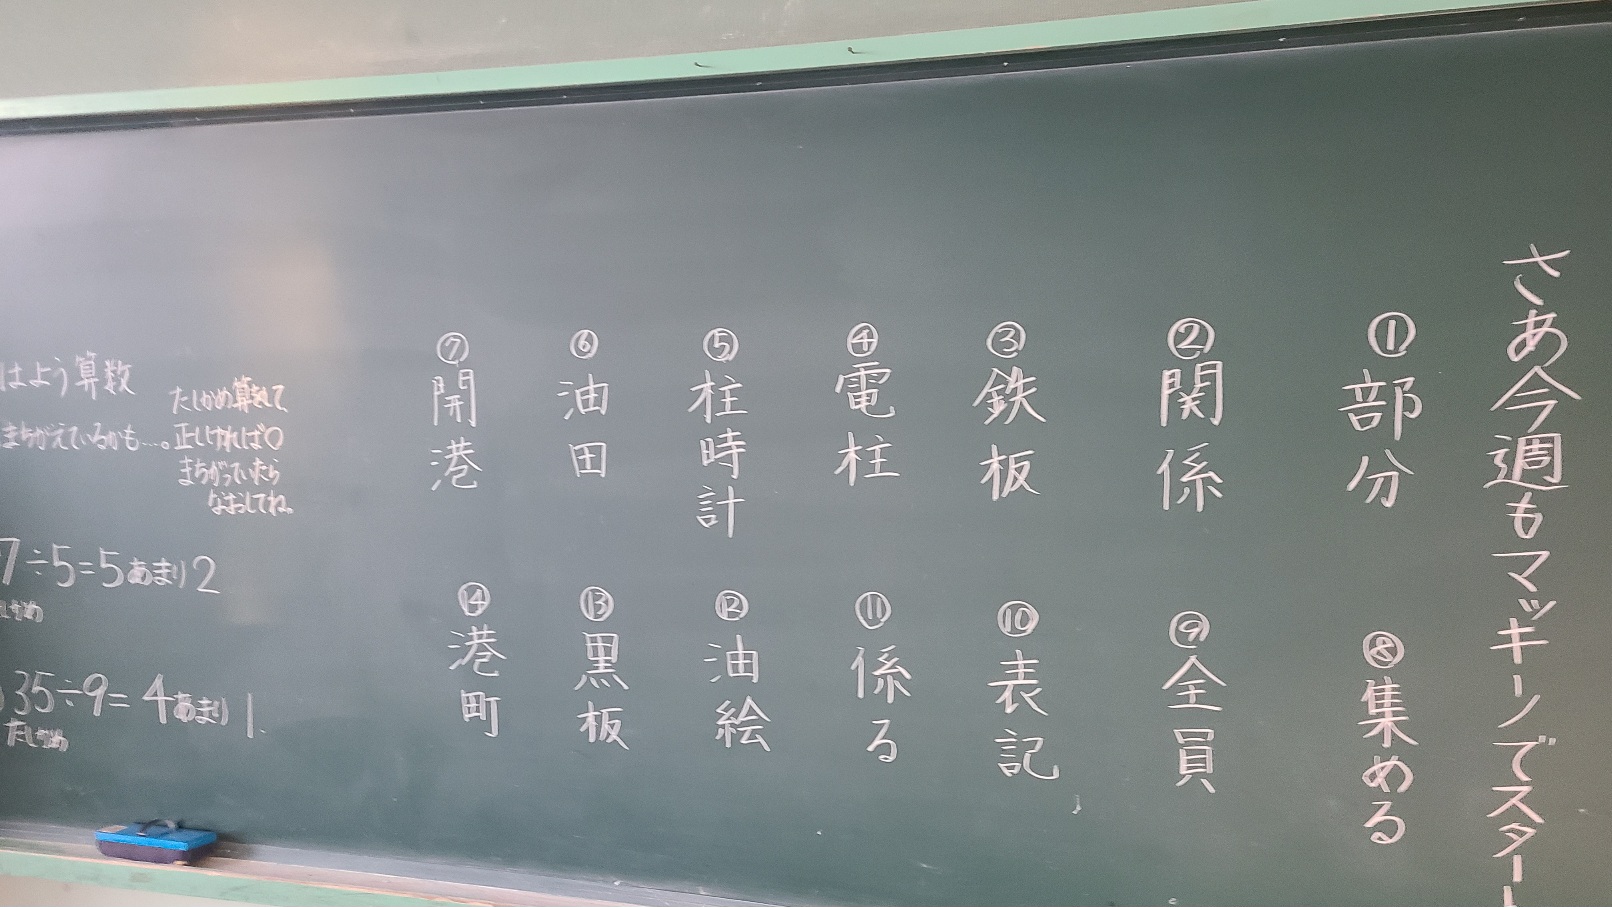 さあ今週もマッキーノでスター
①部分
②関係
③鉄板
④電柱
⑤柱時計
⑥油田
⑦開港
⑧集める
⑨全員
⑩表記
⑪係る
⑫油絵
⑬黒板
⑭港町
はよう算数
まちがえているかも…。
たしかめ算をして
正しければ○
まちがっていたら
なおしてね。
7÷5=5あまり2
たしかめ
35÷9=4あまり1
たしかめ